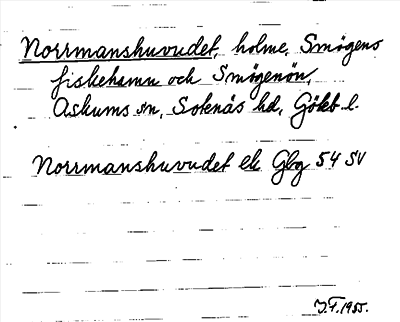 Norrmanshuvudet, holme, Smögens
fiskehamn och Smögenön,
Askums sn, Sotenäs hd, Gbgs l.
Norrmanshuvudet ek Gbg 54 SV
J.F. 1955.